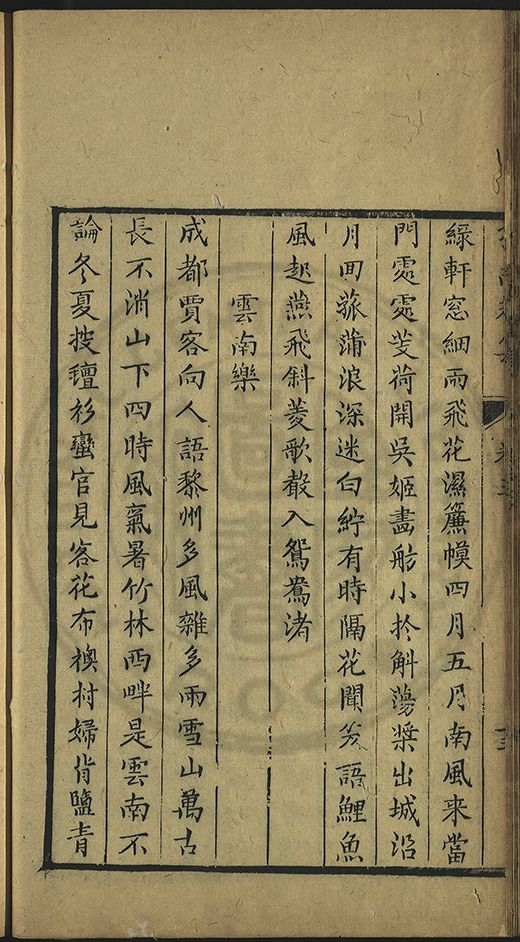 綠軒窓細雨飛花濕簾幙四月五月南風来當
門處處芰荷開吳姬畫舫小於斛蕩槳出城沿
月回菰蒲浪深迷白紵有時隔花聞笑語鯉魚
風起燕飛斜菱歌聲入鴛鴦渚
雲南樂
成都賈客向人語黎州多風雜多雨雪山萬古
長不消山下四時風氣暑竹林西畔是雲南不
論冬夏披氊衫蠻官見客花布襖村婦背鹽青